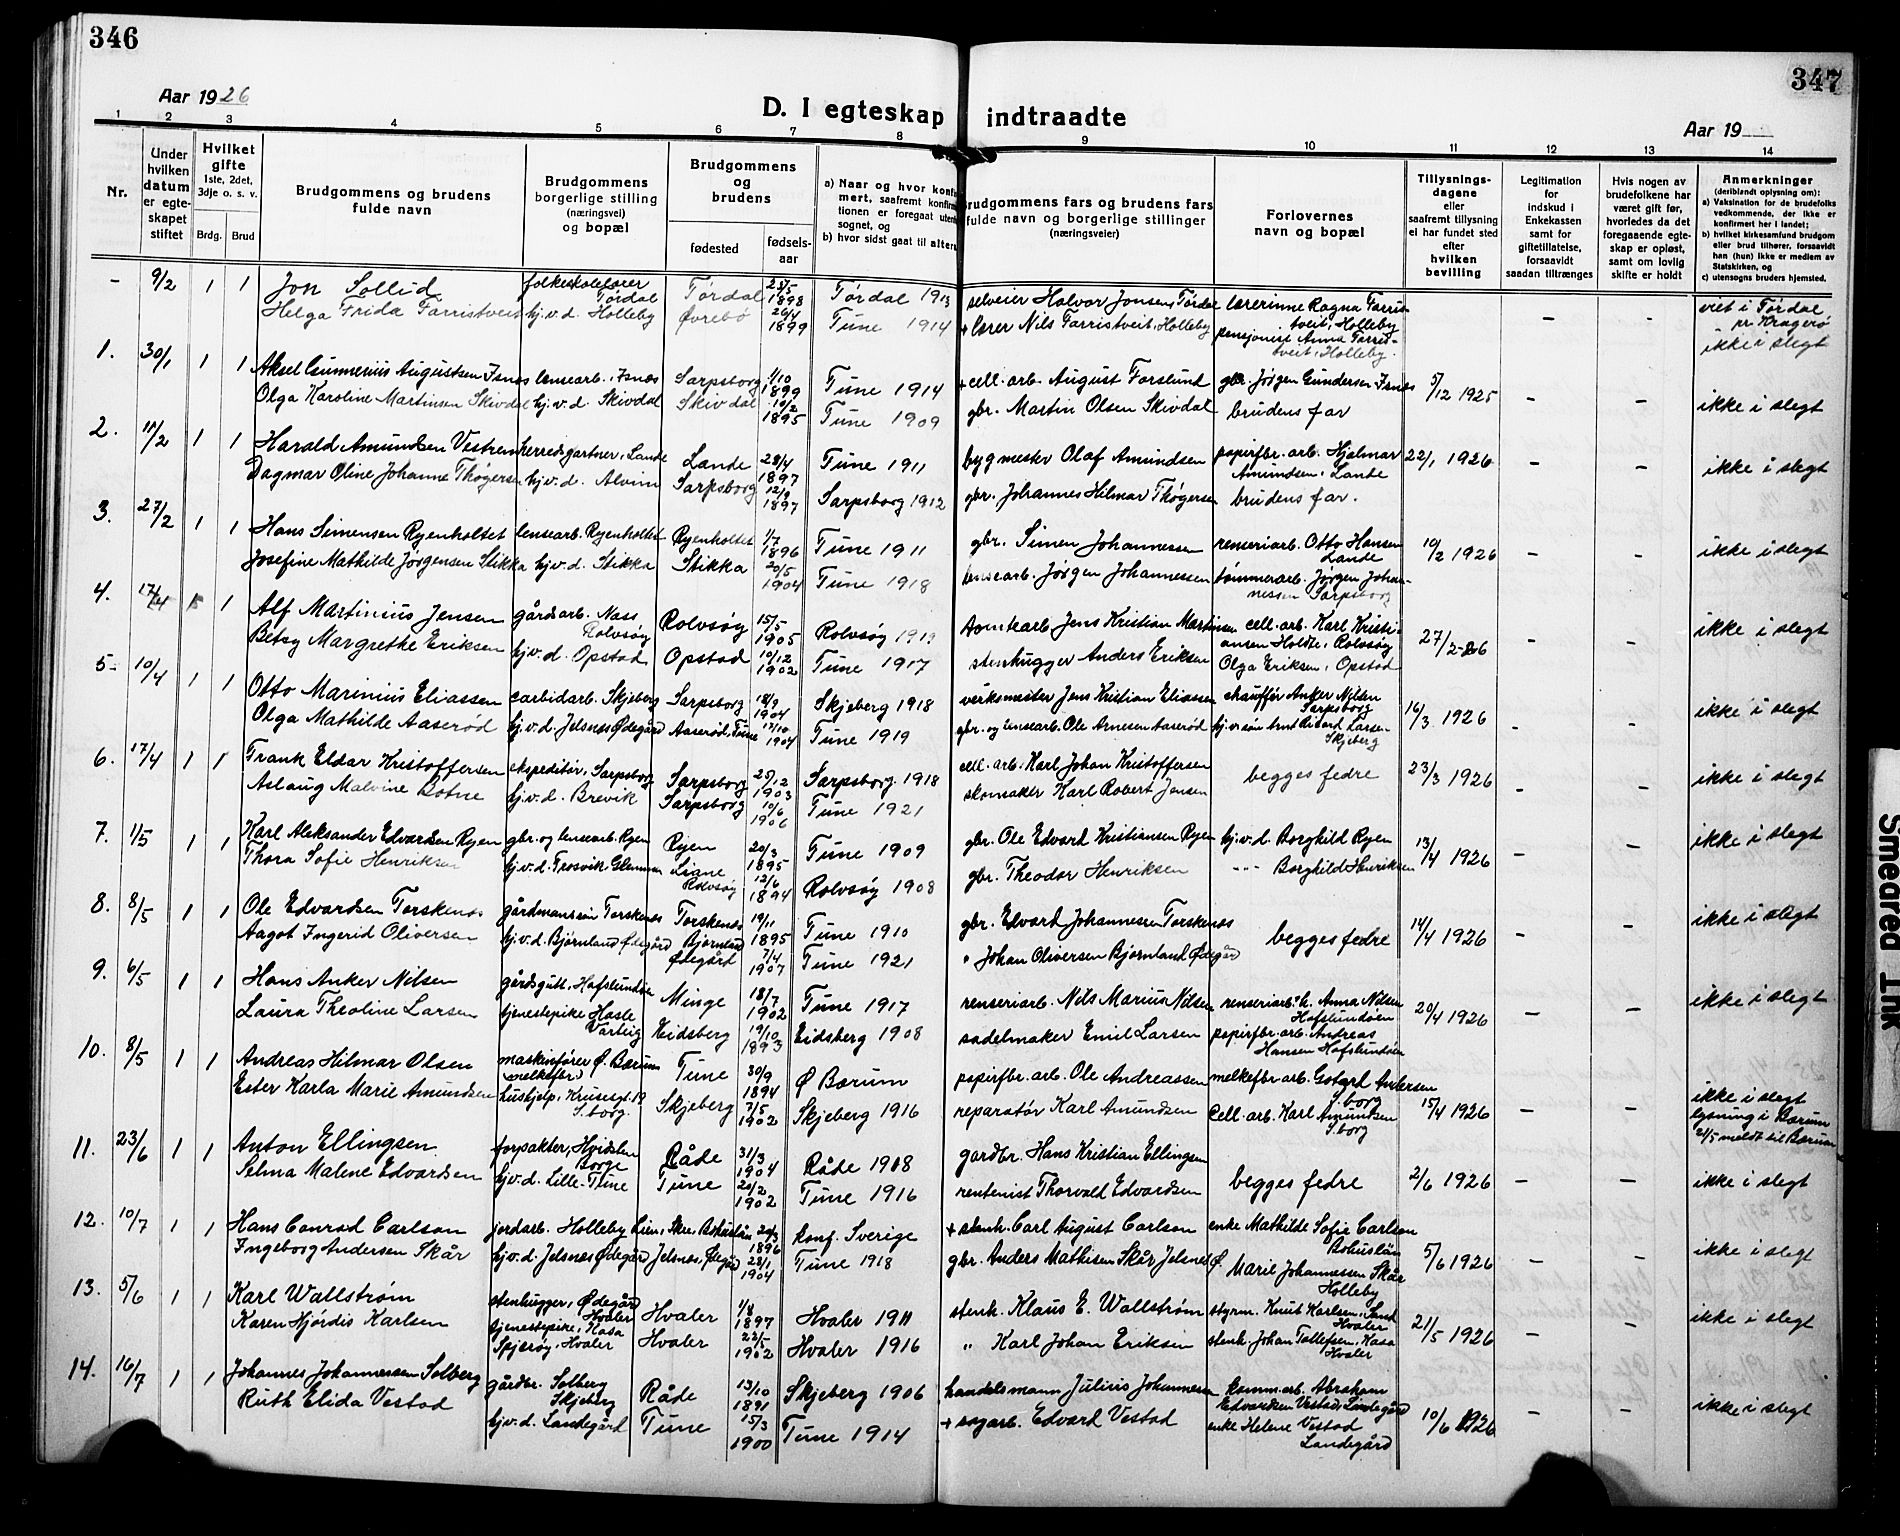 346
347
Aar 1926
D. I egteskap indtraadte
Aar 19
1 2 3 4 5 6 7 8 9 10 11 12 13 14
Nr.
Under hvilken datum er egteskapet stiftet
Hvilket gifte 1ste, 2det, 3dje o. s. v.
Brdg. Brud
Brudgommens og brudens fulde navn
Brudgommens borgerlige stilling (næringsvei) og bopæl
Brudgommens og brudens
fødested
fødsels-aar
a) Naar og hvor konfirmert, saafremt konfirmationen er foregaat utenfor sognet, og
b) hvor sidst gaat til alters
Brudgommens fars og brudens fars fulde navn og borgerlige stillinger (næringsveier)
Forlovernes navn og bopæl
Tillysnings-dagene eller saafremt tillysning ei har fundet sted efter hvilken bevilling
Legitimation for indskud i Enkekassen samt for giftetillatelse, forsaavidt saadan tiltrænges
Hvis nogen av brudefolkene har været gift før, hvorledes da det foregaaende egteskap er opløst, samt om lovlig skifte er holdt
Anmerkninger (deriblandt oplysning om):
a) Vaksination for de brudefolks vedkommende, der ikke er konfirmert her i landet;
b) hvilket kirkesamfund brudgom eller brud tilhører, forsaavidt han (hun) ikke er medlem av Statskirken, og
c) utensogns bruders hjemsted.
- 9/2 1 1 Jon Sollid folkeskolelærer Tørdal Tørdal 28/5 1898 Tørdal 1913 selveier Halvor Jonsen, Tørdal lærerinne Ragna Farristveit, Holleby - - viet i Tørdal pr. Kragerø
Helga Frida Farristveit hj.v.d. Holleby Øvrebø 26/4 1899 Tune 1914 + lærer Nils Farristveit, Holleby pensjonist Anna Farristveit, Holleby. ikke i slegt
1. 30/1 1 1 Aksel Gunnerius Augustsen Isnes lensearb., Isnes Sarpsborg 1/10 1899 Tune 1914 + cell. arb. August Forslund gbr. Jørgen Gundersen Isnes 5/12 1925 - - ikke i slegt
Olga Karoline Martinsen Skivdal hj.v.d. Skivdal Skivdal 10/2 1895 Tune 1909 gbr. Martin Olsen Skivdal brudens far
2. 11/2 1 1 Harald Amundsen Vestren herredsgartner, Lande Lande 28/4 1897 Tune 1911 bygmester Olaf Amundsen papirfbr. arb. Hjalmar Amundsen, Lande 22/1 1926 - - ikke i slegt
Dagmar Oline Johanne Thøgersen hj.v.d. Alvim Sarpsborg 12/9 1897 Sarpsborg 1912 gbr. Johannes Hilmar Thøgersen brudens far.
3. 27/2 1 1 Hans Simensen Ryenholtet lensearb. Ryenholtet Ryenholtet 1/7 1896 Tune 1911 gbr. Simen Johannessen renseriarb. Otto Hansen Lande 10/2 1926 - - ikke i slegt
Josefine Mathilde Jørgensen Stikka hj.v.d. Stikka Stikka 20/5 1904 Tune 1918 lensearb. Jørgen Johannessen tømmerarb. Jørgen Johannessen Sarpsborg
4. 17/4 1 Alf Martinius Jensen gårdsarb. Nass Rolvsøy Rolvsøy 15/5 1905 Rolvsøy 1919 tomtearb Jens Kristian Martinsen cell. arb. Karl Kristiansen Holdte, Rolvsøy 27/2-26 - - ikke i slegt
Betsy Margrethe Eriksen hj.v.d. Opstad Opstad 10/12 1902 Tune 1917 stenhugger Anders Eriksen Olga Eriksen, Opstad
5- 10/4 1 1 Otto Marinius Eliassen carbidarb. Skjeberg Sarpsborg 18/9 1904 Skjeberg 1918 verksmester Jens Kristian Eliassen chauffør Anker Nilsen Sarpsborg 16/3 1926 - - ikke i slegt
Olga Mathilde Aaserød hj.v.d. Jelsnes Ødegård Aaserød, Tune 17/10 1904 Tune 1919 gbr. og lensearb. Ole Arnesen Aaserød Larsen Skjeberg
6. 17/4 1 1 Frank Eldar Kristoffersen ekspeditør, Sarpsborg Sarpsborg 25/12 1903 Sarpsborg 1918 cell. arb. Karl Johan Kristoffersen begges fedre 23/3 1926 - - ikke i slegt
Aslaug Malvine Botne hj.v.d. Brevik Sarpsborg 10/6 1906 Tune 1921 skomaker Karl Robert Jensen
7. 1/5 1 1 Karl Aleksander Edvardsen Ryen gbr. og lensearb. Ryen Ryen 20/3 1895 Tune 1909 gbr. Ole Edvard Kristiansen Ryen hj.v.d. Borghild Ryen 13/4 1926 - - ikke i slegt
Thora Sofie Henriksen hj.v.d. Trosvik Glemmen Liane Rolvsøy 12/6 1894 Rolvsøy 1908 gbr. Theodor Henriksen --- Borghild Henriksen
8. 8/5 1 1 Ole Edvardsen Torskenes gårdmannssøn Torskenes Torskenes 19/11 1895 Tune 1910 gbr. Edvard Johannesen Torskenes begges fedre 14/4 1926 - - ikke i slegt
Aagot Ingerid Oliversen hj.v.d. Bjørnland Ødegård Bjørnland Ødegård 7/4 1907 Tune 1921 " Johan Oliversen Bjørnland Ødegård
9. 6/5 1 1 Hans Anker Nilsen gårdsgutt, Hafslundsøen Minge 18/7 1902 Tune 1917 renseriarb. Nils Marius Nilsen renseriarb. h. Anna Nilsen Hafslundsøen 20/4 1926 - - ikke i slegt
Laura Theoline Larsen tjenestepike Hasle Varteig Eidsberg 19/10 1893 Eidsberg 1908 sadelmaker Emil Larsen papirfbr. arb. Andreas Hansen Hafslundsøen
10. 8/5 1 1 Andreas Hilmar Olsen maskinfører Ø. Bærum (melkefbr.) Tune 30/9 1894 Ø Bærum papirfbr. arb. Ole Andreassen melkefbr arb. Gotard Andersen S.borg 15/4 1926 - - ikke i slegt
Ester Karla Marie Amundsen hushjelp, Krusesgt. 19 S.borg. Skjeberg 7/5 1902 Skjeberg 1916 reparatør Karl Amundsen cell. arb. Karl Amundsen S.borg lysning i Bærum 21/5 meldt til Bærum
11. 23/6 1 1 Anton Ellingsen forpakter, Hvidsten Borge Råde 31/3 1904 Råde 1918 gardbr. Hans Kristian Ellingsen begges fedre 2/6 1926 - - ikke i slegt
Selma Malene Edvardsen hj.v.d. Lille-Tune Tune 20/2 1902 Tune 1916 rentenist Thorvald Edvardsen
12. 10/7 1 1 Hans Conrad Carlson jordarb. Holleby Lien, Skee, Bohuslän 20/3 1896 konf. Sverige + stenh. Carl August Carlson enke Mathilde Sofie Carlson Bohuslän 5/6 1926 - - ikke i slegt
Ingeborg Andersen Skår hj.v.d. Jelsnes Ødegård Jelsnes, Ødegård 28/1 1904 Tune 1918 gbr. Anders Mathisen Skår, Jelsnes Ø. Marie Johannessen Skår Holleby
13. 5/6 1 1 Karl Wallstrøm stenhugger, Ødegård Hvaler Hvaler 1/8 1897 Hvaler 1911 stenh. Klaus E. Wallstrøm styrm. Knut Karlsen, Sand Hvaler 21/5 1926 - - ikke i slegt
Karen Hjørdis Karlsen tjenestepike, Kasa Spjerøy, Hvaler Hvaler 1902 Hvaler 1916 " Karl Johan Eriksen stenh. Johan Tollefsen, Kasa Hvaler
14. 16/7 1 1 Johannes Johannessen Solberg gårdbr. Solberg Skjeberg Råde 13/10 1891 Skjeberg 1906 handelsmann Julius Johannesen komm. arb. Abraham Edvardsen Vestad, Lindegård 10/6 1926 - - ikke i slegt
Ruth Elida Vestad hj.v.d. Landegård Tune 15/3 1900 Tune 1914 + sagarb. Edvard Vestad enke Helene Vestad Landegård
Smeared Ink